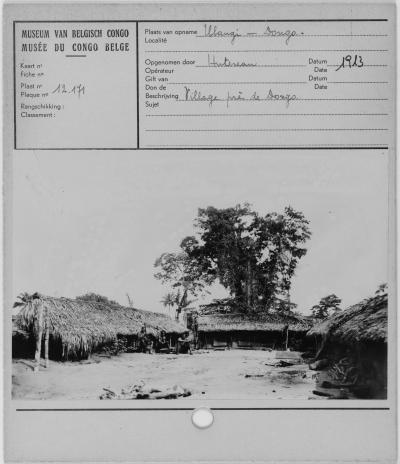 MUSEUM VAN BELGISCH CONGO
MUSÉE DU CONGO BELGE
Kaart nº
Fiche nº
Plaat nº
Plaque nº 12.171
Rangschikking :
Classement :
Plaats van opname Ubangi — Dongo.
Localité
Opgenomen door Hutereau Datum 1913
Opérateur Date
Gift van Datum
Don de Date
Beschrijving Village près de Dongo
Sujet